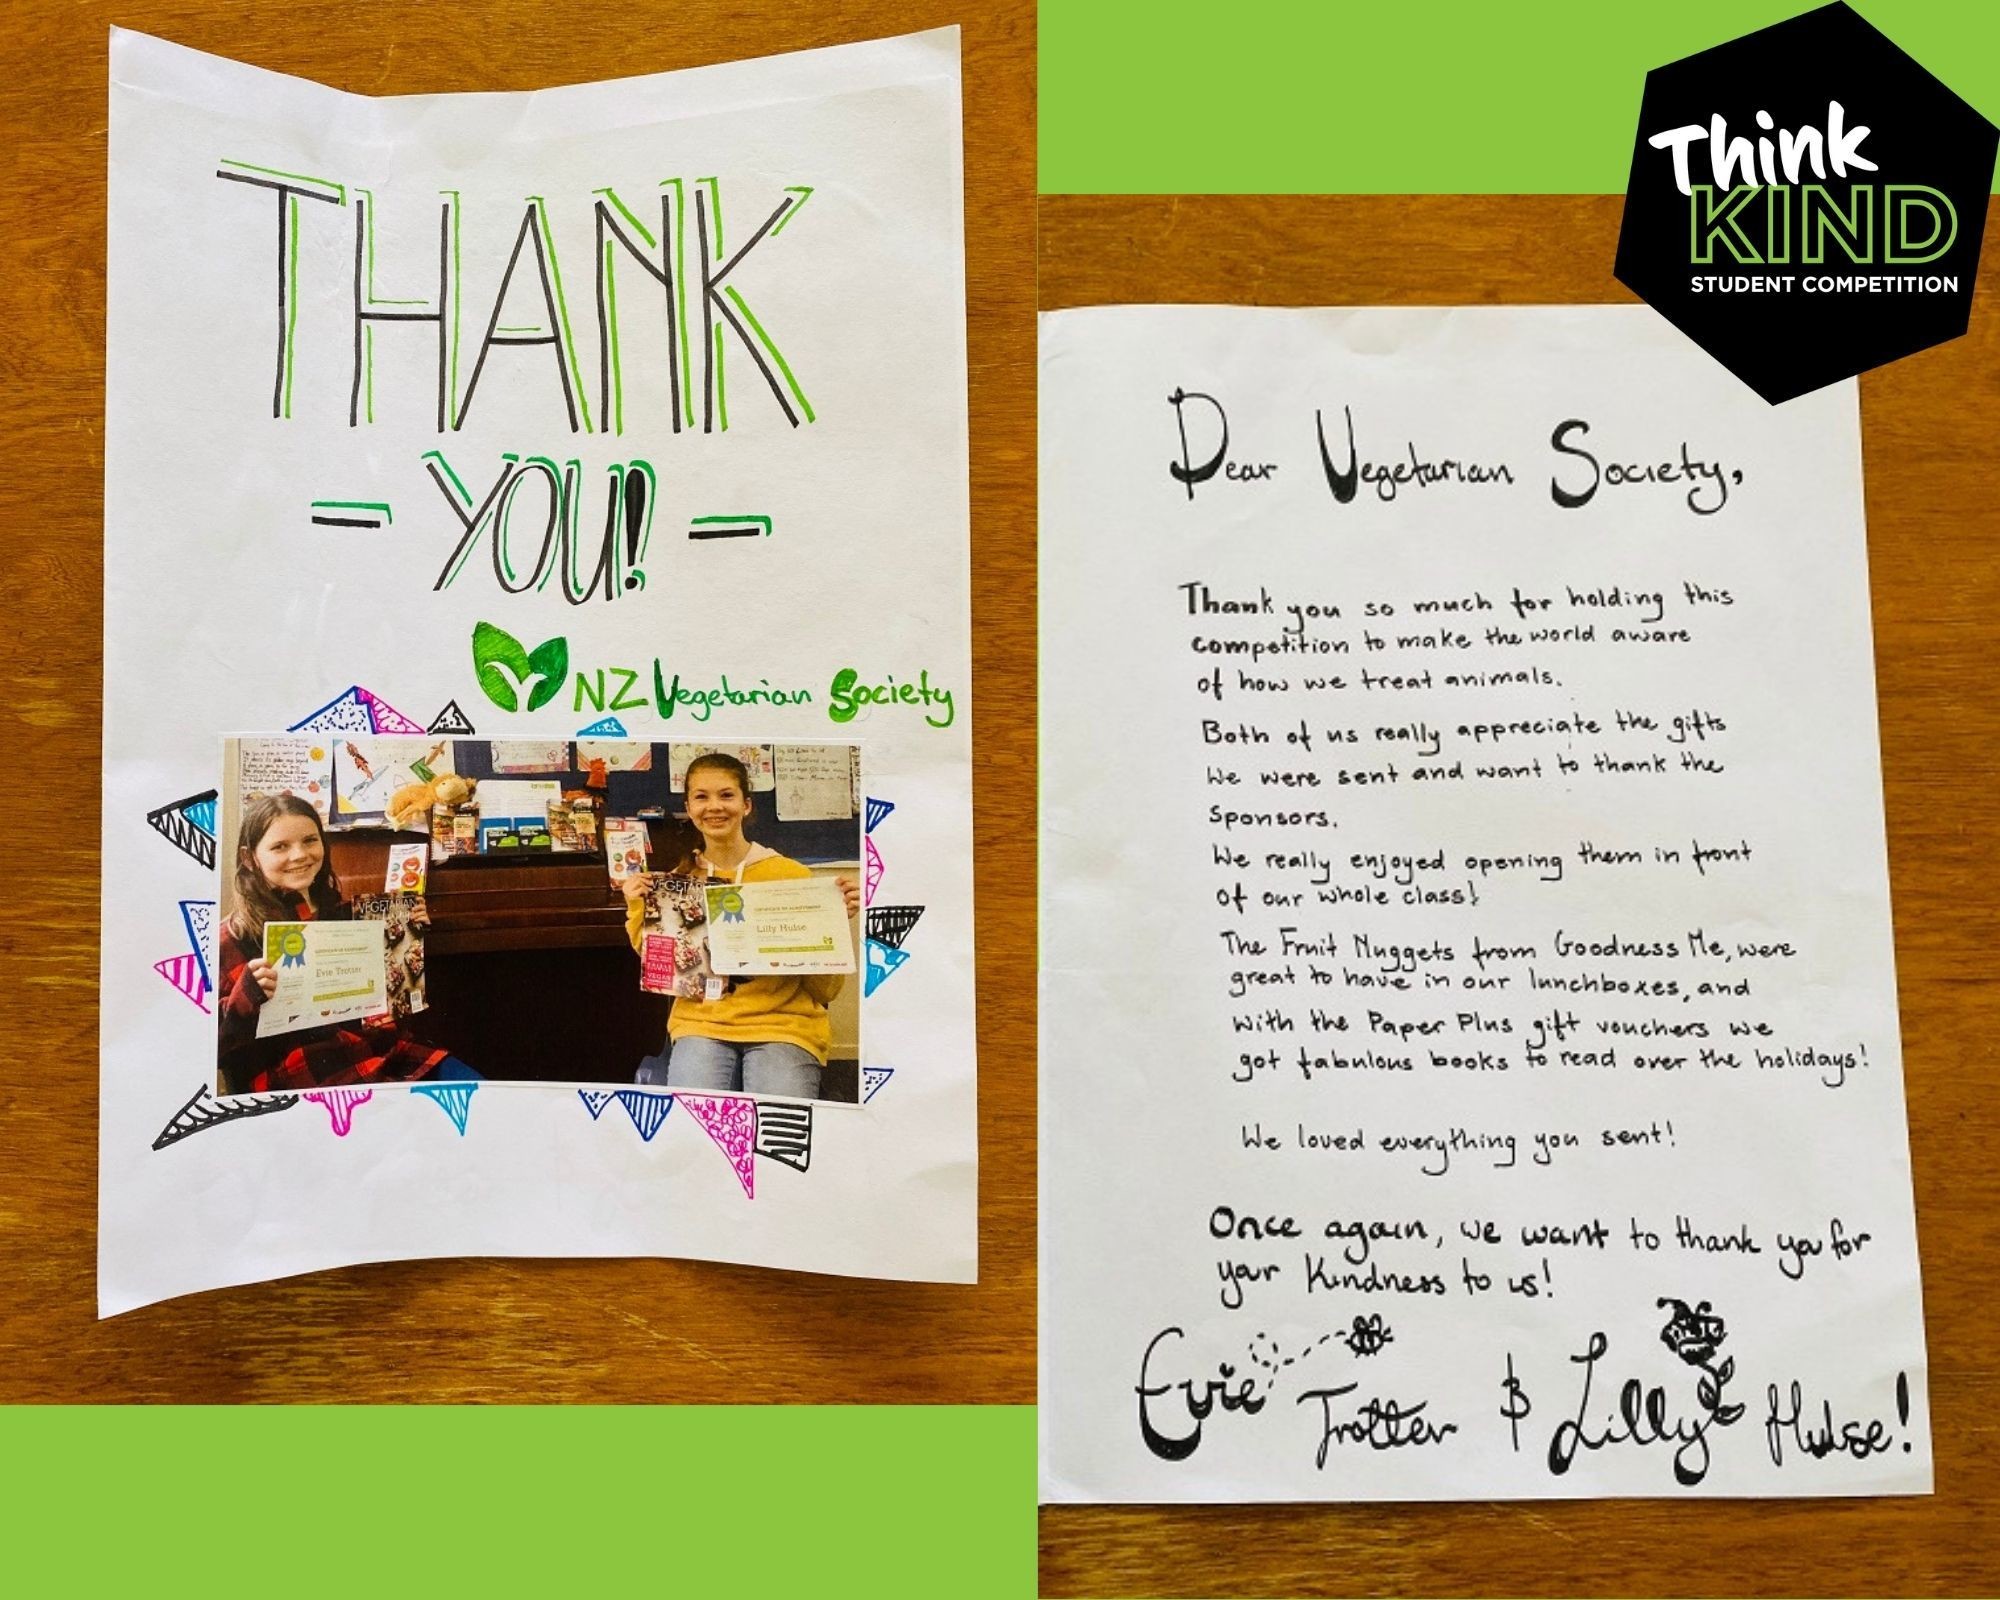 THANK
- YOU! -
NZ Vegetarian Society
VEGETARIAN
Evie Trotter
VEGETARIAN
CERTIFICATE OF ACHIEVEMENT
Lilly Hulse
VEGAN
Think
KIND
STUDENT COMPETITION
Dear Vegetarian Society,
Thank you so much for holding this
competition to make the world aware
of how we treat animals.
Both of us really appreciate the gifts
We were sent and want to thank the
Sponsors.
We really enjoyed opening them in front
of our whole class!
The Fruit Nuggets from Goodness Me, were
great to have in our lunchboxes, and
with the Paper Plus gift vouchers we
got fabulous books to read over the holidays!
We loved everything you sent!
Once again, we want to thank you for
your Kindness to us!
Evie Trotter & Lilly Hulse!